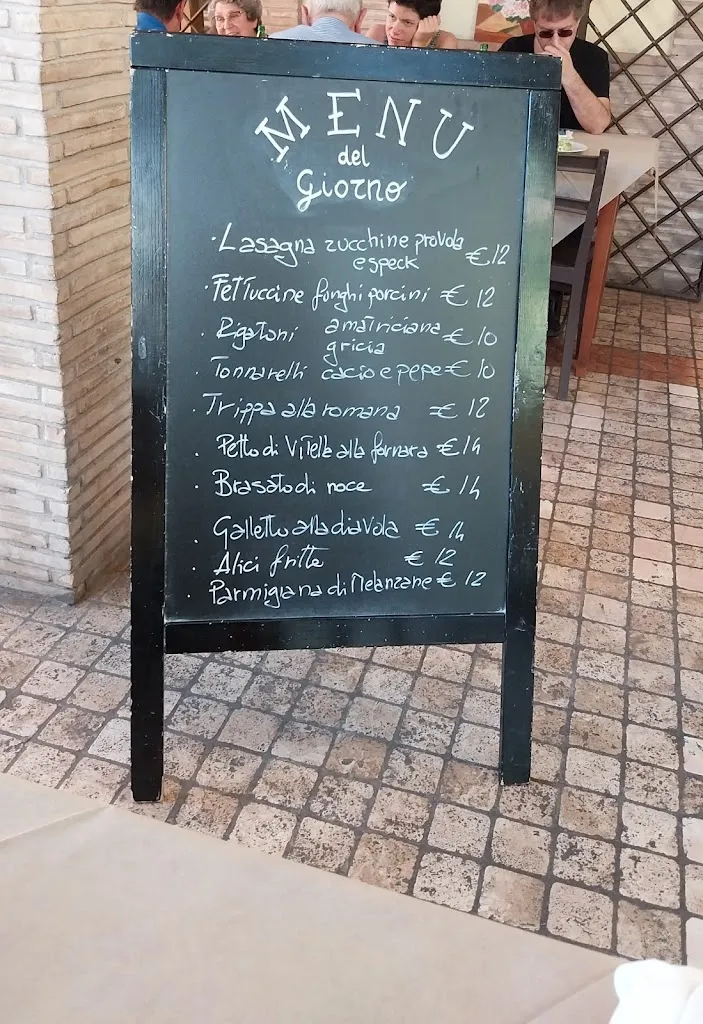 MENU
del
Giorno
· Lasagna zucchine provola € 12
e speck
· Fettuccine funghi porcini € 12
· Rigatoni amatriciana € 10
gricia
· Tonnarelli cacio e pepe € 10
· Trippa alla romana € 12
· Petto di Vitella alla fornara € 14
· Brasato di noce € 14
· Galletto alla diavola € 14
· Alici fritte € 12
· Parmigiana di Melanzane € 12